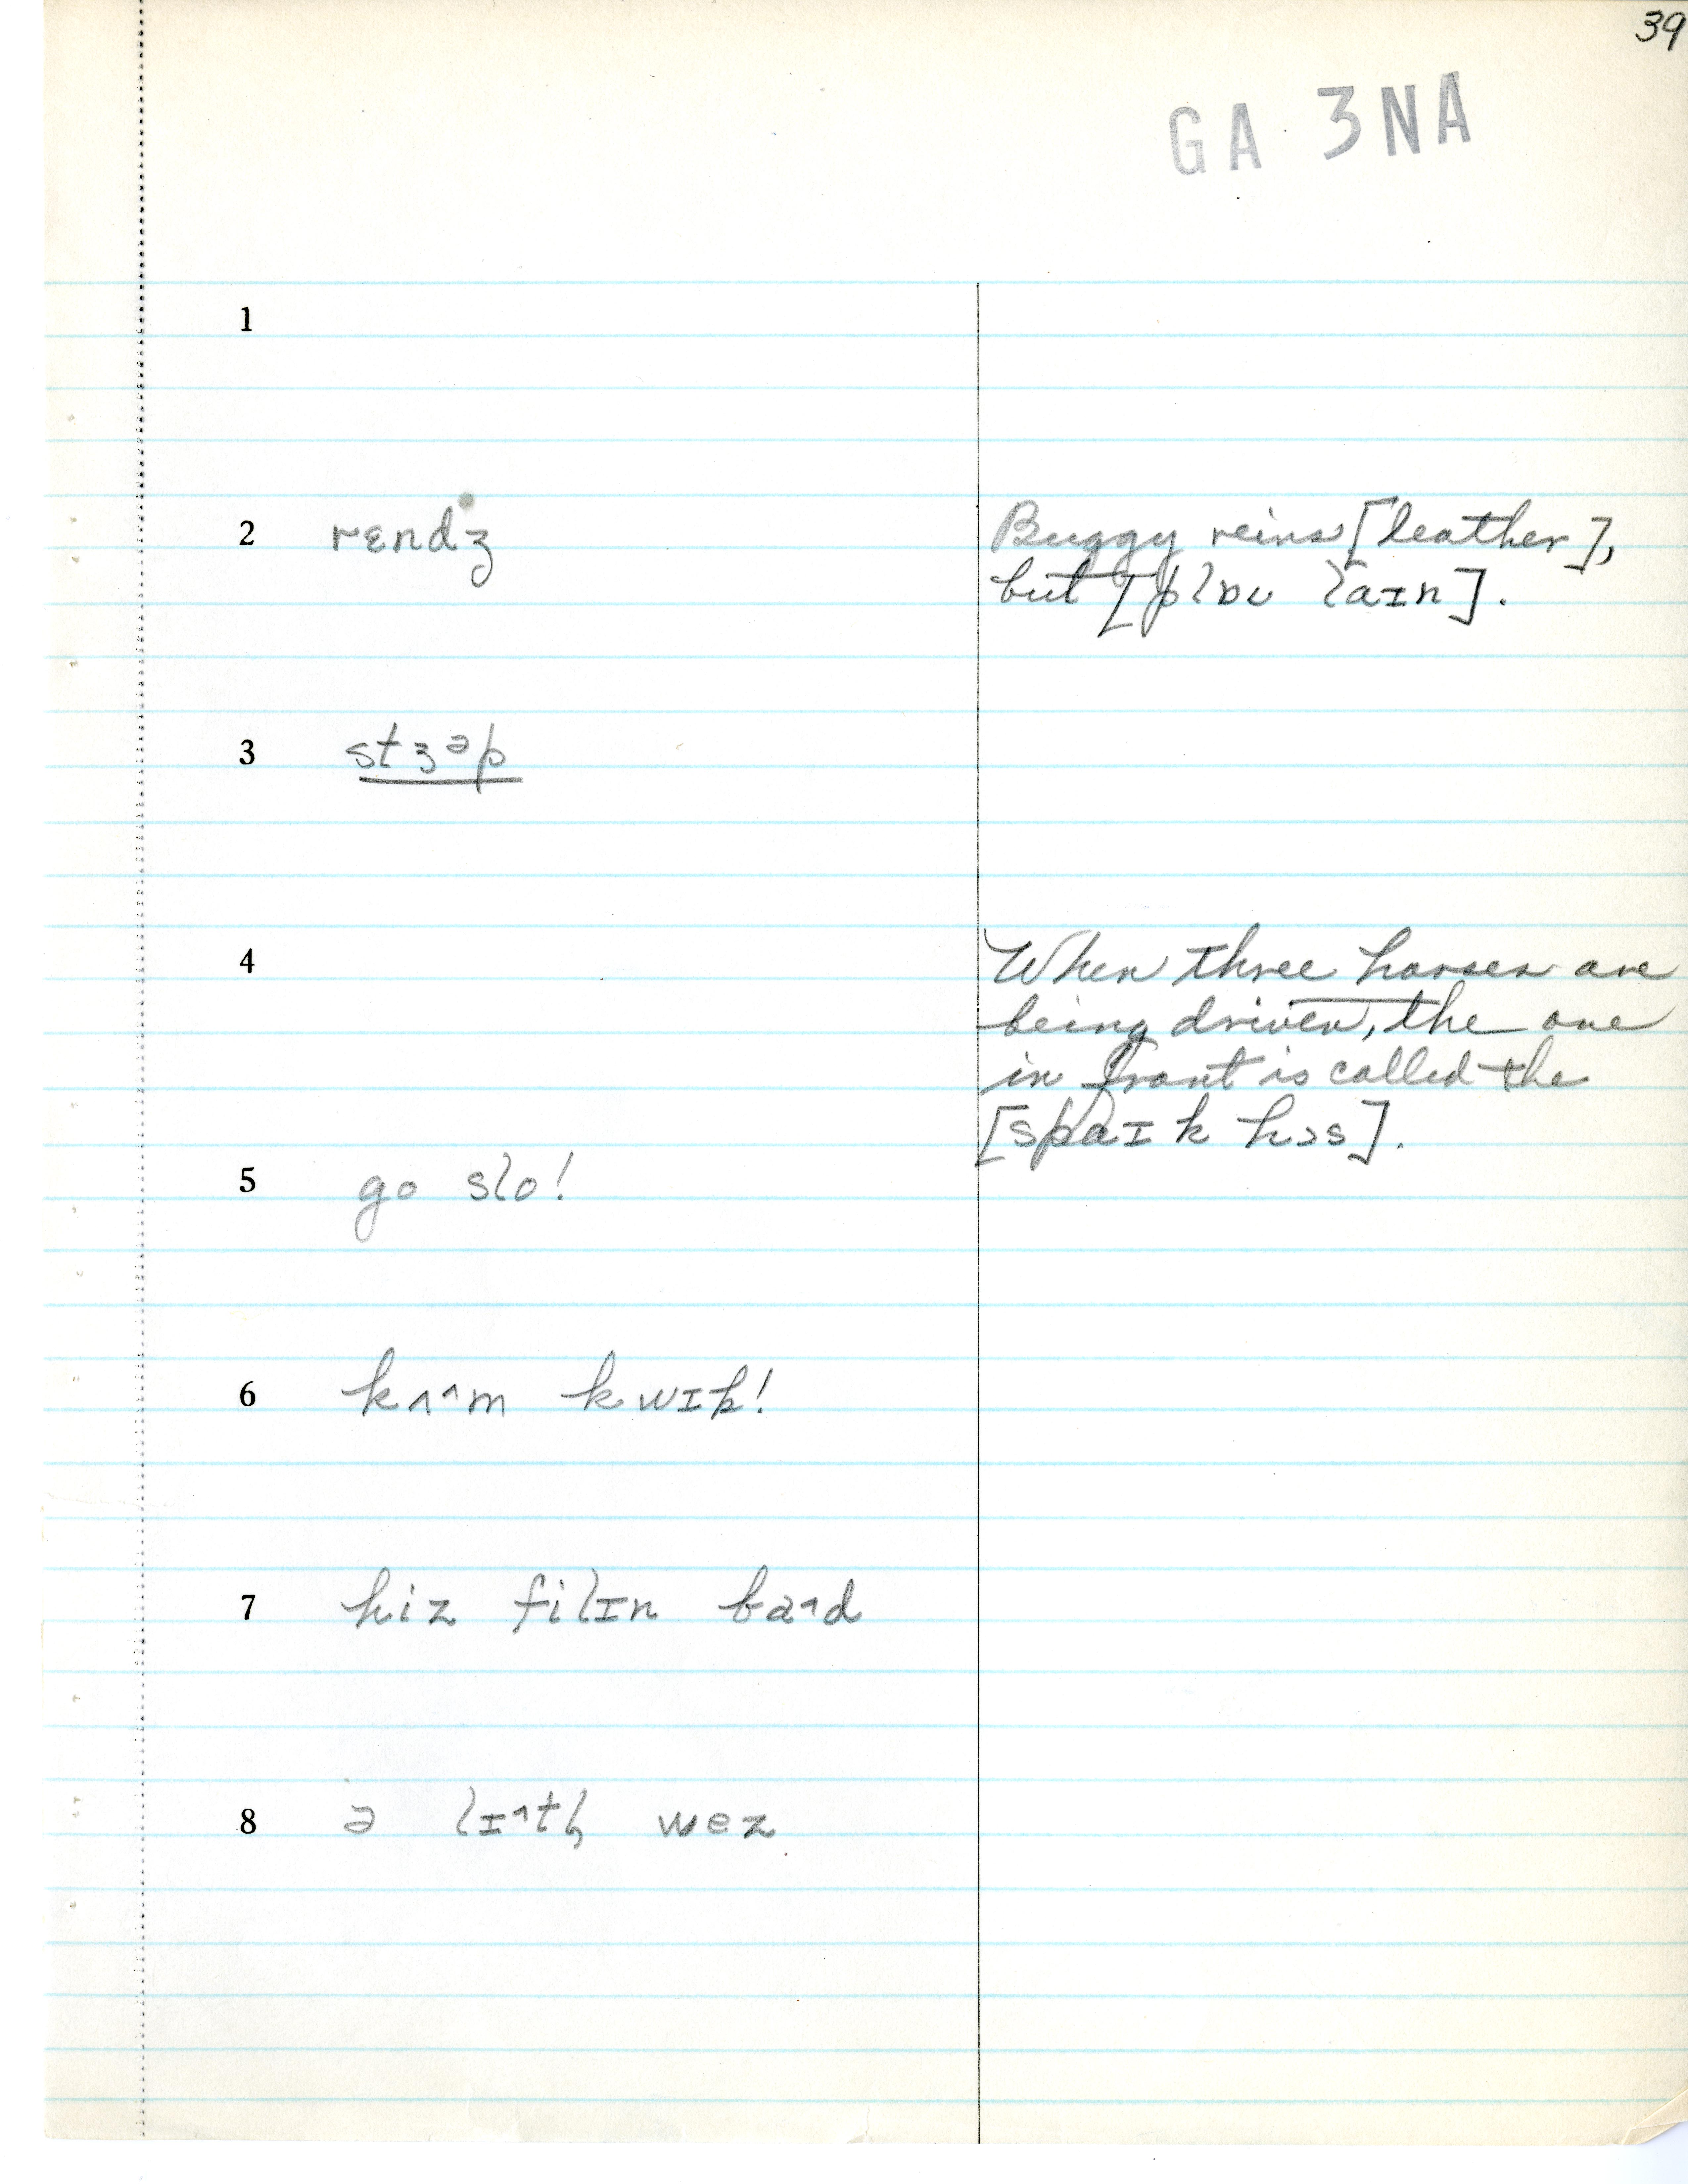 39
GA 3NA
1
2 rɛndʒ
Buggy reins [leather],
but [plɒʊ laɪn].
3 stɜᵊp
4
When three horses are
being driven, the one
in front is called the
[spaɪk hɔs].
5 go slo!
6 kʌ^m kwɪk!
7 hiz filɪn ba^d
8 ə lɪ^tl̩ wez